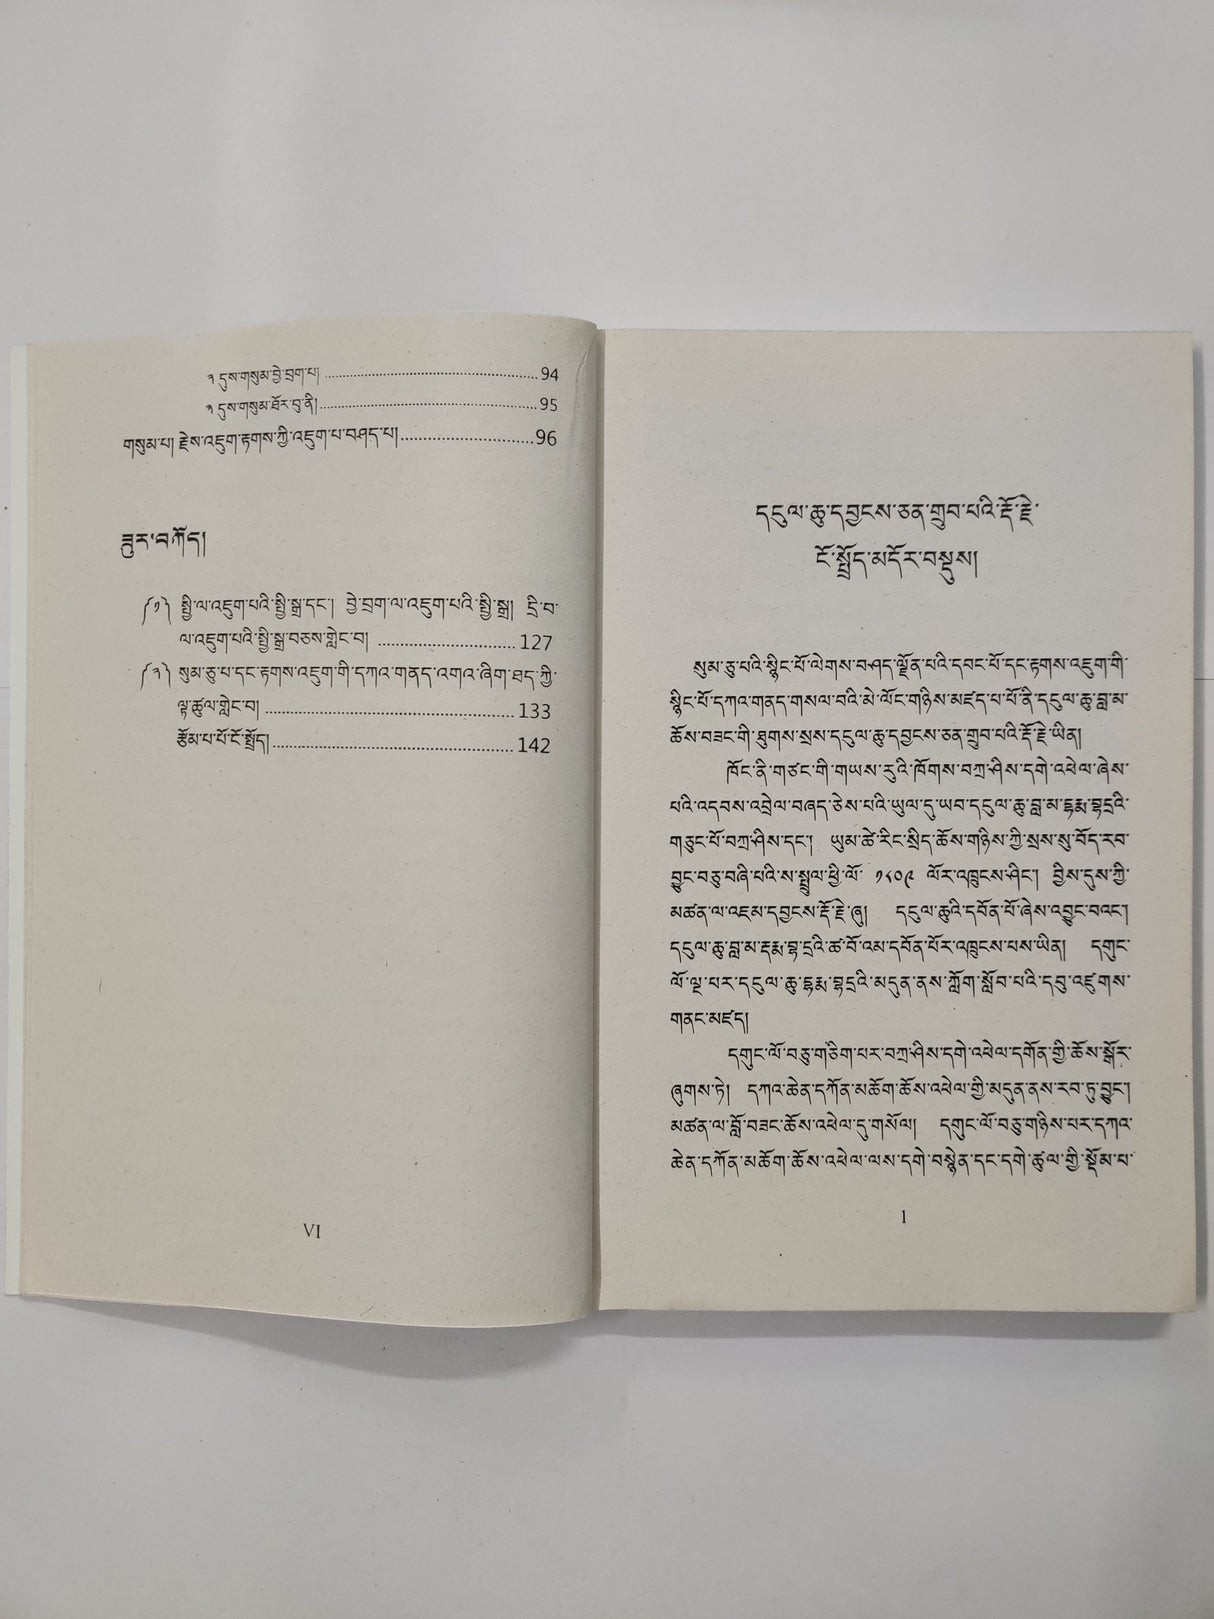 ༢ དུས་གསུམ་བྱེ་བྲག་པ། ........................................................94
༣ དུས་གསུམ་ཐོར་བུ་ནི།........................................................95
གསུམ་པ། རྗེས་འཇུག་རྟགས་ཀྱི་འཇུག་པ་བཤད་པ།..............................96
ཟུར་བཀོད།
(༡) སྤྱི་ལ་འཇུག་པའི་སྤྱི་སྒྲ་དང་། བྱེ་བྲག་ལ་འཇུག་པའི་སྤྱི་སྒྲ། དྲི་བ་
ལ་འཇུག་པའི་སྤྱི་སྒྲ་བཅས་གླེང་བ། ................................127
(༢) སུམ་ཅུ་པ་དང་རྟགས་འཇུག་གི་དཀའ་གནད་འགའ་ཞིག་ཐད་ཀྱི་
ལྟ་ཚུལ་གླེང་བ། ..........................................................133
རྩོམ་པ་པོ་ངོ་སྤྲོད།........................................................142
VI
དངུལ་ཆུ་དབྱངས་ཅན་གྲུབ་པའི་རྡོ་རྗེ་
ངོ་སྤྲོད་མདོར་བསྡུས།
སུམ་ཅུ་པའི་སྙིང་པོ་ལེགས་བཤད་ལྗོན་པའི་དབང་པོ་དང་རྟགས་འཇུག་གི་
སྙིང་པོ་དཀའ་གནད་གསལ་བའི་མེ་ལོང་གཉིས་མཛད་པ་པོ་ནི་དངུལ་ཆུ་བླ་མ་
ཆོས་བཟང་གི་ཐུགས་སྲས་དངུལ་ཆུ་དབྱངས་ཅན་གྲུབ་པའི་རྡོ་རྗེ་ཡིན།
ཁོང་ནི་གཙང་གི་གཡས་རུའི་ཁོགས་བཀྲ་ཤིས་དགེ་འཕེལ་ཞེས་
པའི་འདབས་འབྲེལ་བཞད་ཅེས་པའི་ཡུལ་དུ་ཡབ་དངུལ་ཆུ་བླ་མ་དྷརྨ་བྷདྲའི་
གཅུང་པོ་བཀྲ་ཤིས་དང་། ཡུམ་ཚེ་རིང་སྲིད་ཆོས་གཉིས་ཀྱི་སྲས་སུ་བོད་རབ་
བྱུང་བཅུ་བཞི་པའི་ས་སྦྲུལ་ཕྱི་ལོ་ ༡༨༠༩ ལོར་འཁྲུངས་ཤིང་། བྱིས་དུས་ཀྱི་
མཚན་ལ་འཇམ་དབྱངས་རྡོ་རྗེ་ཞུ། དངུལ་ཆུའི་དབོན་པོ་ཞེས་འབྱུང་བའང་།
དངུལ་ཆུ་བླ་མ་དྷརྨ་བྷ་དྲའི་ཚ་བོ་འམ་དབོན་པོར་འཁྲུངས་པས་ཡིན། དགུང་
ལོ་ལྔ་པར་དངུལ་ཆུ་དྷརྨ་བྷདྲའི་མདུན་ནས་ཀློག་སློབ་པའི་དབུ་འཛུགས་
གནང་མཛད།
དགུང་ལོ་བཅུ་གཅིག་པར་བཀྲ་ཤིས་དགེ་འཕེལ་དགོན་གྱི་ཆོས་སྒོར་
ཞུགས་ཏེ། དཀའ་ཆེན་དཀོན་མཆོག་ཆོས་འཕེལ་གྱི་མདུན་ནས་རབ་ཏུ་བྱུང་།
མཚན་ལ་བློ་བཟང་ཆོས་འཕེལ་དུ་གསོལ། དགུང་ལོ་བཅུ་གཉིས་པར་དཀའ་
ཆེན་དཀོན་མཆོག་ཆོས་འཕེལ་ལས་དགེ་བསྙེན་དང་དགེ་ཚུལ་གྱི་སྡོམ་པ་
1